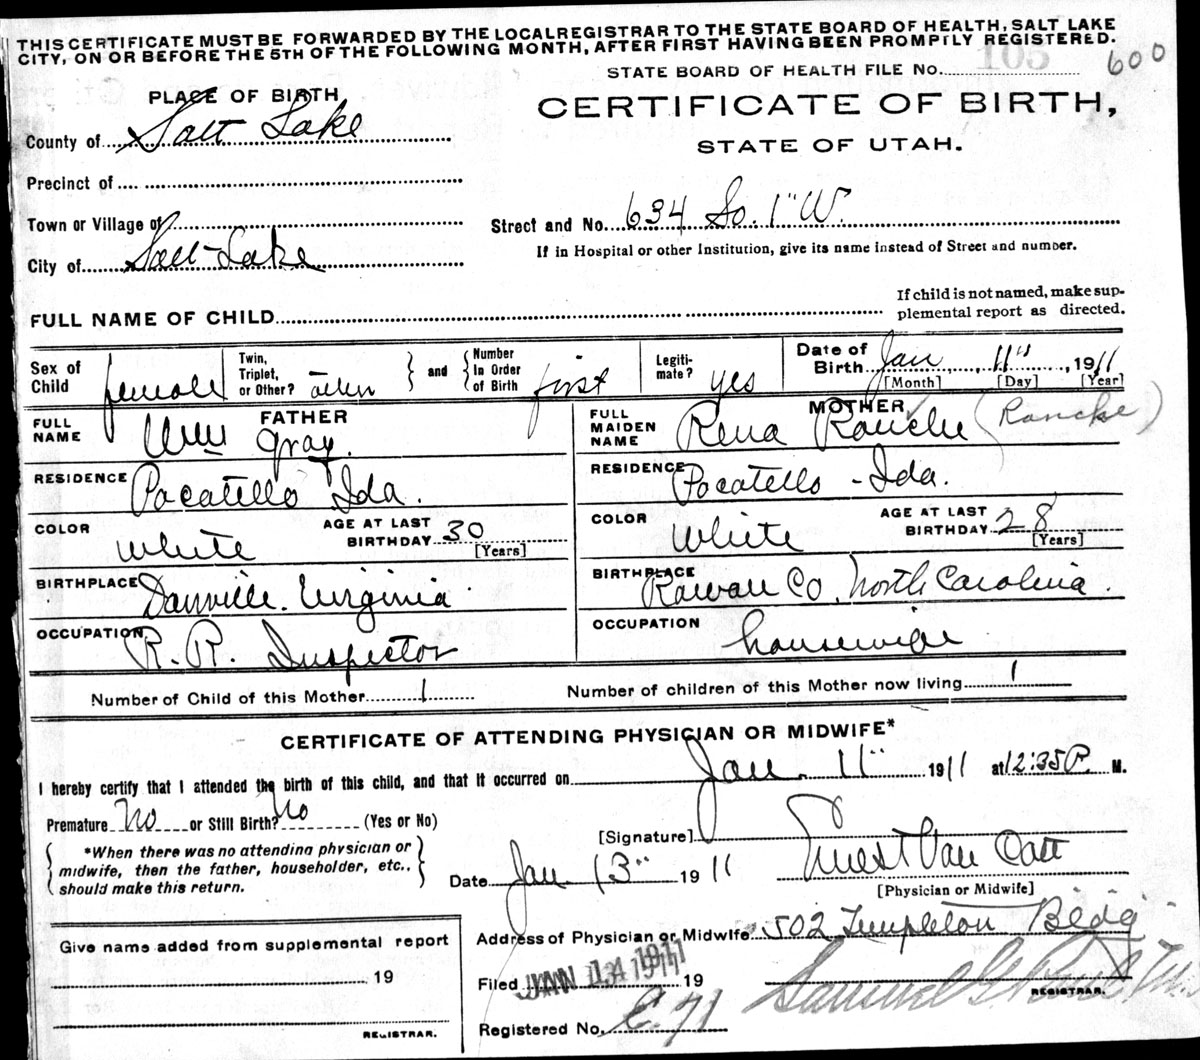 THIS CERTIFICATE MUST BE FORWARDED BY THE LOCALREGISTRAR TO THE STATE BOARD OF HEALTH, SALT LAKE
CITY, ON OR BEFORE THE 5TH OF THE FOLLOWING MONTH, AFTER FIRST HAVING BEEN PROMPTLY REGISTERED.
STATE BOARD OF HEALTH FILE No. 105 600
PLACE OF BIRTH
CERTIFICATE OF BIRTH,
County of Salt Lake
STATE OF UTAH.
Precinct of
Town or Village of
Street and No. 634 So. 1" W.
If in Hospital or other Institution, give its name instead of Street and number.
City of Salt Lake
If child is not named, make sup-
plemental report as directed.
FULL NAME OF CHILD
Sex of Child female
Twin, Triplet, or Other?
and
Number In Order of Birth first
Legiti- mate? yes
Date of Birth Jan 11" 1911
[Month] [Day] [Year]
FATHER
MOTHER
FULL NAME Wm Gray.
FULL MAIDEN NAME Rena Ranche (Rancke)
RESIDENCE Pocatello Ida.
RESIDENCE Pocatello - Ida.
COLOR White
AGE AT LAST BIRTHDAY 30
[Years]
COLOR White
AGE AT LAST BIRTHDAY 28
[Years]
BIRTHPLACE Danville. Virginia
BIRTHPLACE Rowan Co, North Carolina.
OCCUPATION R. R. Inspector
OCCUPATION housewife
Number of Child of this Mother 1
Number of children of this Mother now living 1
CERTIFICATE OF ATTENDING PHYSICIAN OR MIDWIFE*
I hereby certify that I attended the birth of this child, and that it occurred on Jan. 11" 1911 at 12:35 P. M.
Premature No or Still Birth? No (Yes or No)
*When there was no attending physician or
midwife, then the father, householder, etc.,
should make this return.
[Signature] Ernest Van Cott
Date Jan 13" 1911
[Physician or Midwife]
Address of Physician or Midwife 502 Templeton Bldg
Give name added from supplemental report
19
REGISTRAR.
Filed JAN 14 1911 19
REGISTRAR.
Registered No. E. 71